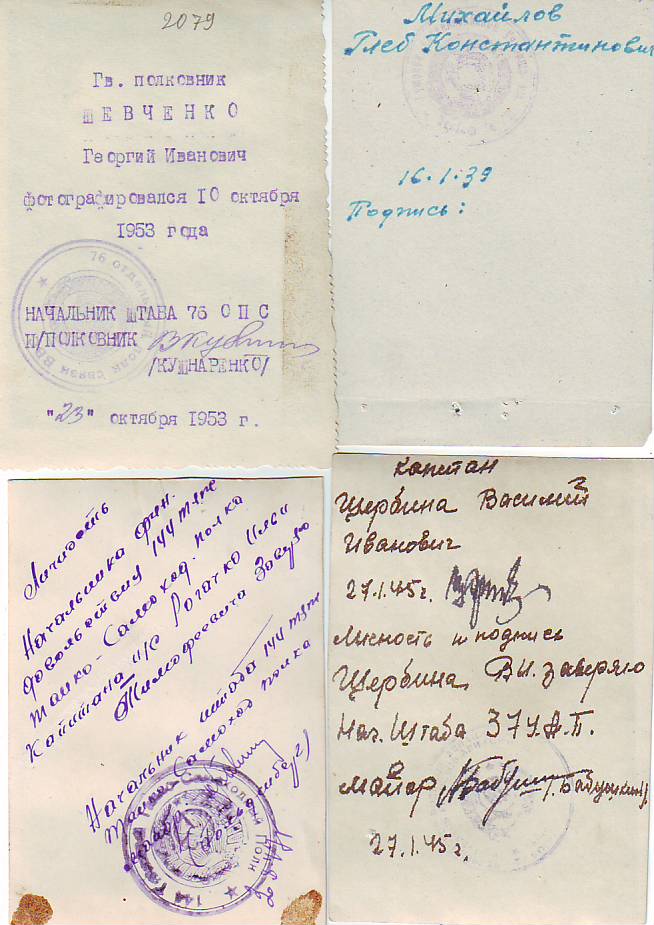 2079
Гв. полковник
ШЕВЧЕНКО
Георгий Иванович
фотографировался 10 октября
1953 года
76 отдельный полк связи
НАЧАЛЬНИК ШТАБА 76 О П С
П/ПОЛКОВНИК
/КУШНАРЕНКО/
"23" октября 1953 г.
Михайлов
Глеб Константинович
16.1.39
Подпись:
Личность
Начальника фин.
довольствия 144 тяж
Танко-Самоход. полка
Капитана и/с Рогачко Ильи
Тимофеевича Заверяю
Начальник штаба 144 тяж
Танко Самоход полка
144 Танко-Самоходный Полк
капитан
Щербина Василий
Иванович
27.1.45г.
Личность и подпись
Щербина В.И. заверяю
Нач. Штаба 37 У.А.П.
майор
27.1.45г.